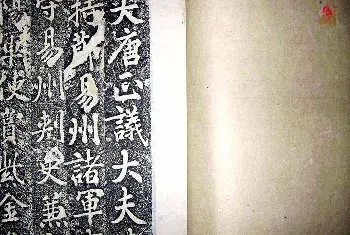 大唐正議大夫
持節易州諸軍
守易州刺史兼
軍使賞紫金